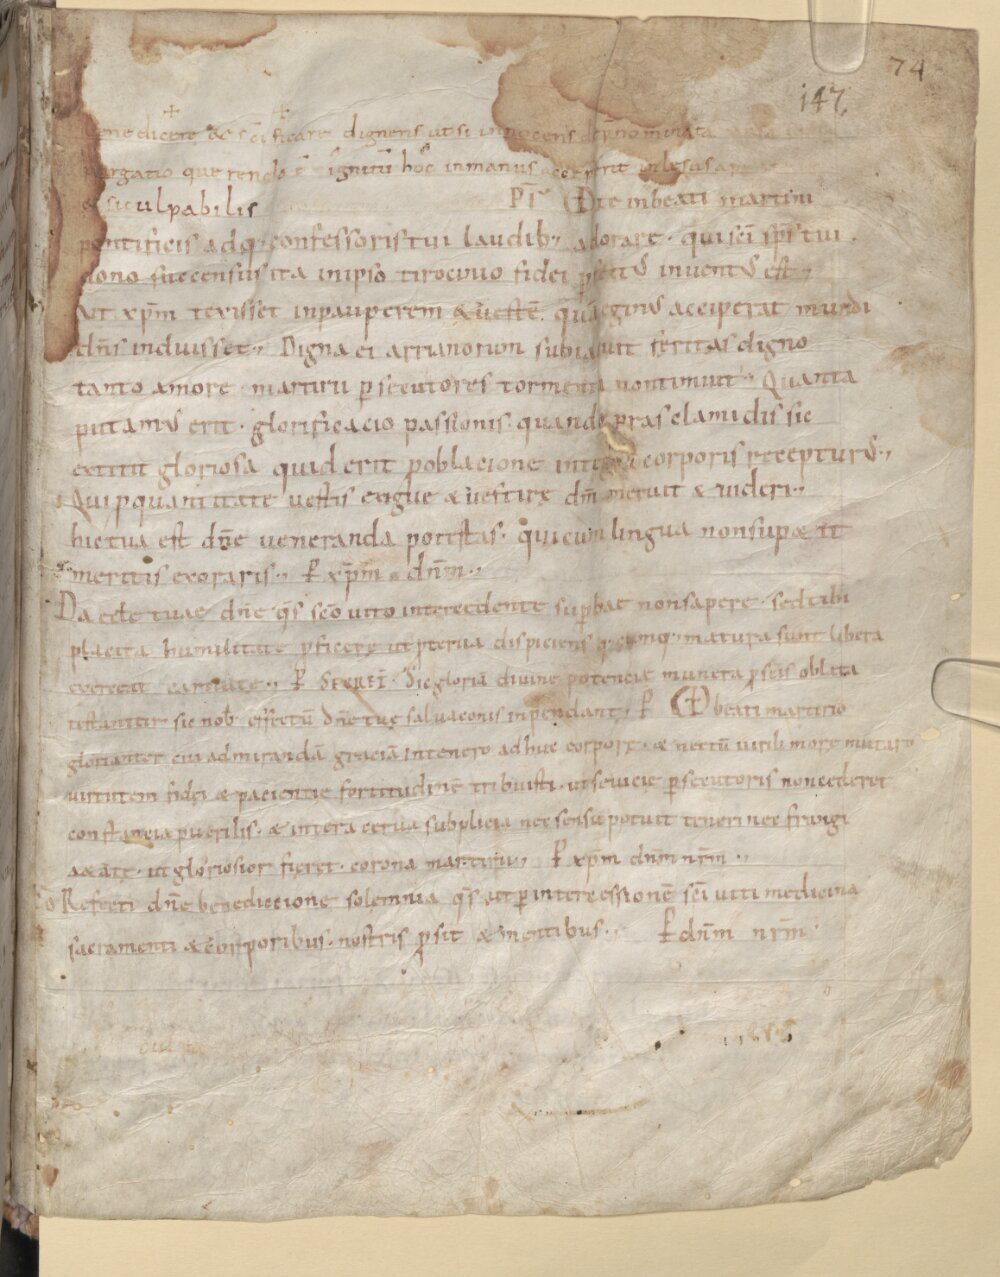 74
147.
benedicere & scificare digneris ut si innocens de nominata
purgatio querendo ē ignitū hoc in manus acceperit inlesus
& si culpabilis PF Te in beati martini
pontificis adq; confessoris tui laudib; adorare · qui sci sps tui
dono succensus ita in ipso tirocinio fidei pfectus inventus est
ut xpm texisset in paupere & vestē quā egenus acciperat mundi
dns induisset · Digna ei arrianorum subiacuit feritas digno
tanto amore · martirii psecutores tormenta non timuit · Quanta
putamus erit · glorificacio passionis quando pars clamidis sic
extitit gloriosa quid erit p oblacione integri corporis recepturus
Qui p quantitate vestis exigue & vestire dm meruit & videri ·
hic tua est dne veneranda potestas · qui cum lingua non suppetit
meritis exoraris · P xpm dnm ·
Da eccle tuae dne qs sco vito intercedente supbae non sapere · sed tibi
placita humilitate pficere ut pterva dispiciens quecumq; matura sunt libera
exerceat caritate · P SECRET · Sic gloriā divine potencie munera p scis oblata
testantur sic nob effectū dne tue salvaconis inpendant · P beati martirio
gloriantes cui admirandā graciā in tenero adhuc corpore · & necdū virili more maturo
virtutem fidei & paciencie fortitudinē tribuisti · ut sevicie psecutoris non cederet
constancia puerilis · & inter acerva subplicia nec sensu potuit teneri nec frangi
aetate · ut gloriosior fieret · corona martirii · P xpm dnm nrm ·
Refecti dne benediccione solemnia qs ut p intercessionē sci viti medicina
sacramenti & corporibus · nostris psit & mentibus · P dnm nrm ·